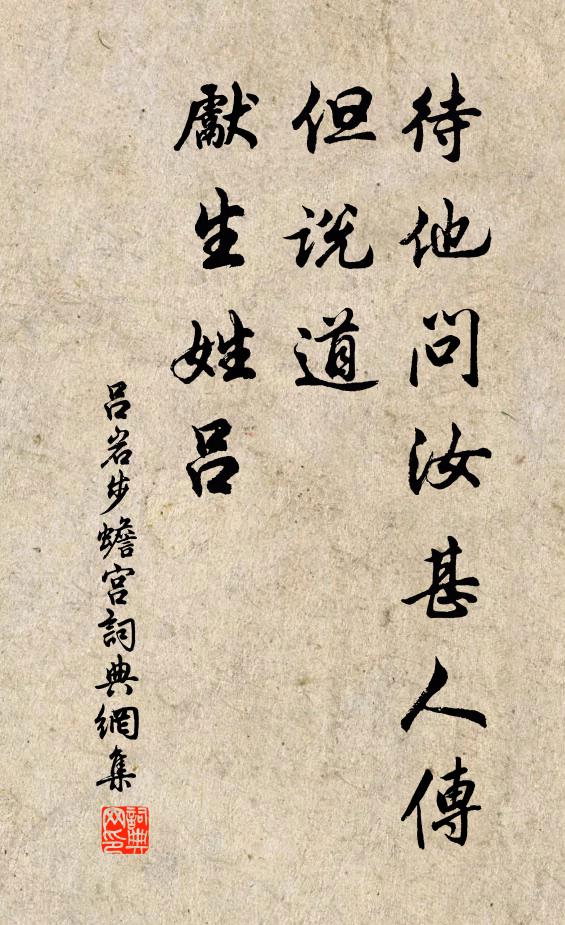 待他問汝甚人傳
但説道
獻生姓呂
呂岩步蟾宮詞典網集
詞典
网印